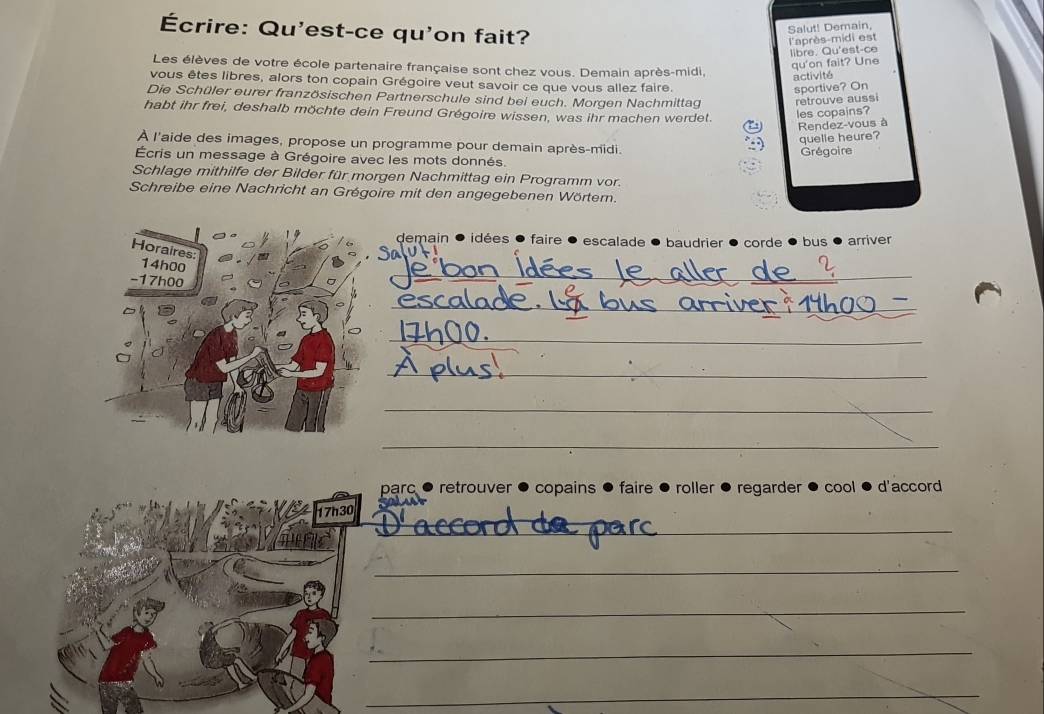 Écrire: Qu'est-ce qu'on fait?
Les élèves de votre école partenaire française sont chez vous. Demain après-midi,
vous êtes libres, alors ton copain Grégoire veut savoir ce que vous allez faire.
Die Schüler eurer französischen Partnerschule sind bei euch. Morgen Nachmittag
habt ihr frei, deshalb möchte dein Freund Grégoire wissen, was ihr machen werdet.
À l'aide des images, propose un programme pour demain après-midi.
Écris un message à Grégoire avec les mots donnés.
Schlage mithilfe der Bilder für morgen Nachmittag ein Programm vor.
Schreibe eine Nachricht an Grégoire mit den angegebenen Wörtern.
Salut! Demain,
l'après-midi est
libre. Qu'est-ce
qu'on fait? Une
activité
sportive? On
retrouve aussi
les copains?
Rendez-vous à
quelle heure?
Grégoire
Horaires:
14h00
-17h00
demain ● idées ● faire ● escalade ● baudrier ● corde ● bus ● arriver
Salut!
Je bon idées le aller de ?
escalade. Le bus arriver à 14h00 -
17h00.
À plus!
17h30
parc ● retrouver ● copains ● faire ● roller ● regarder ● cool ● d'accord
salut
D'accord de parc